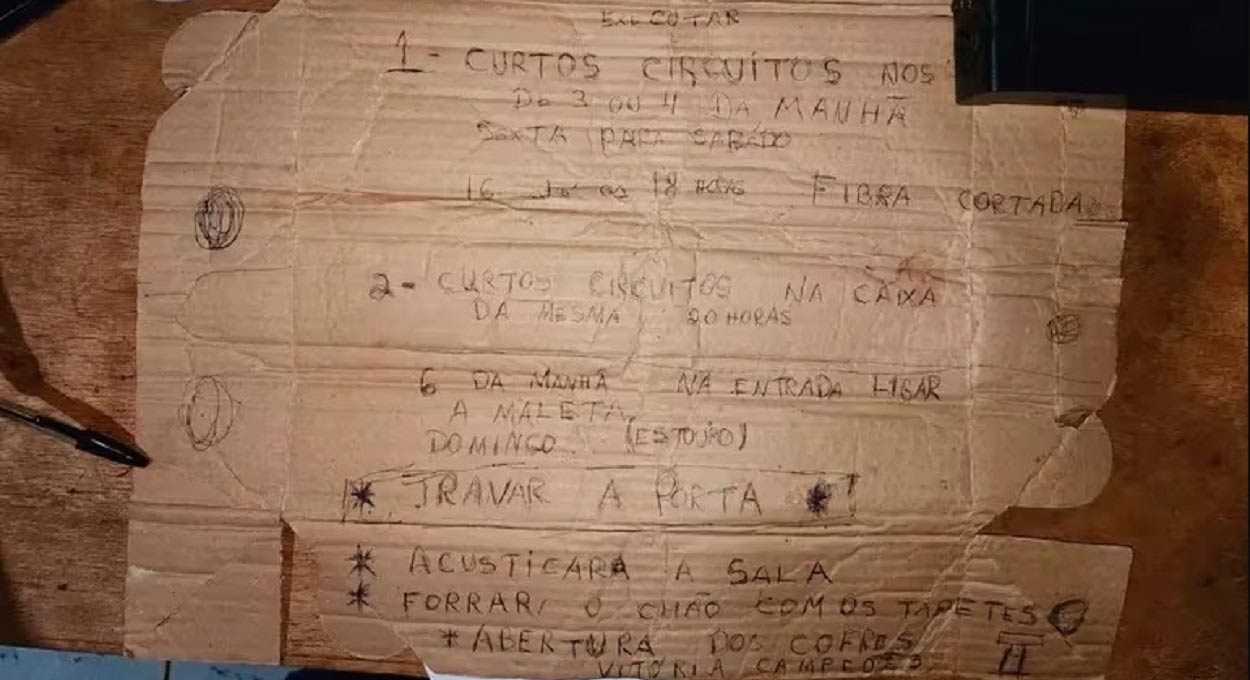 EXECUTAR
1 - CURTOS CIRCUÍTOS NOS
De 3 OU 4 DA MANHÃ
SEXTA PARA SABÁDO
16 18 HORAS FIBRA CORTADA
2 - CURTOS CIRCUITOS NA CAIXA
DA MESMA 20 HORAS
6 DA MANHÃ NA ENTRADA LIGAR
A MALETA,
DOMINGO (ESTOURO)
* TRAVAR A PORTA *
* ACUSTICAR A SALA
* FORRAR O CHÃO COM OS TAPETES
* ABERTURA DOS COFRES II
VITÓRIA CAMPEÕES